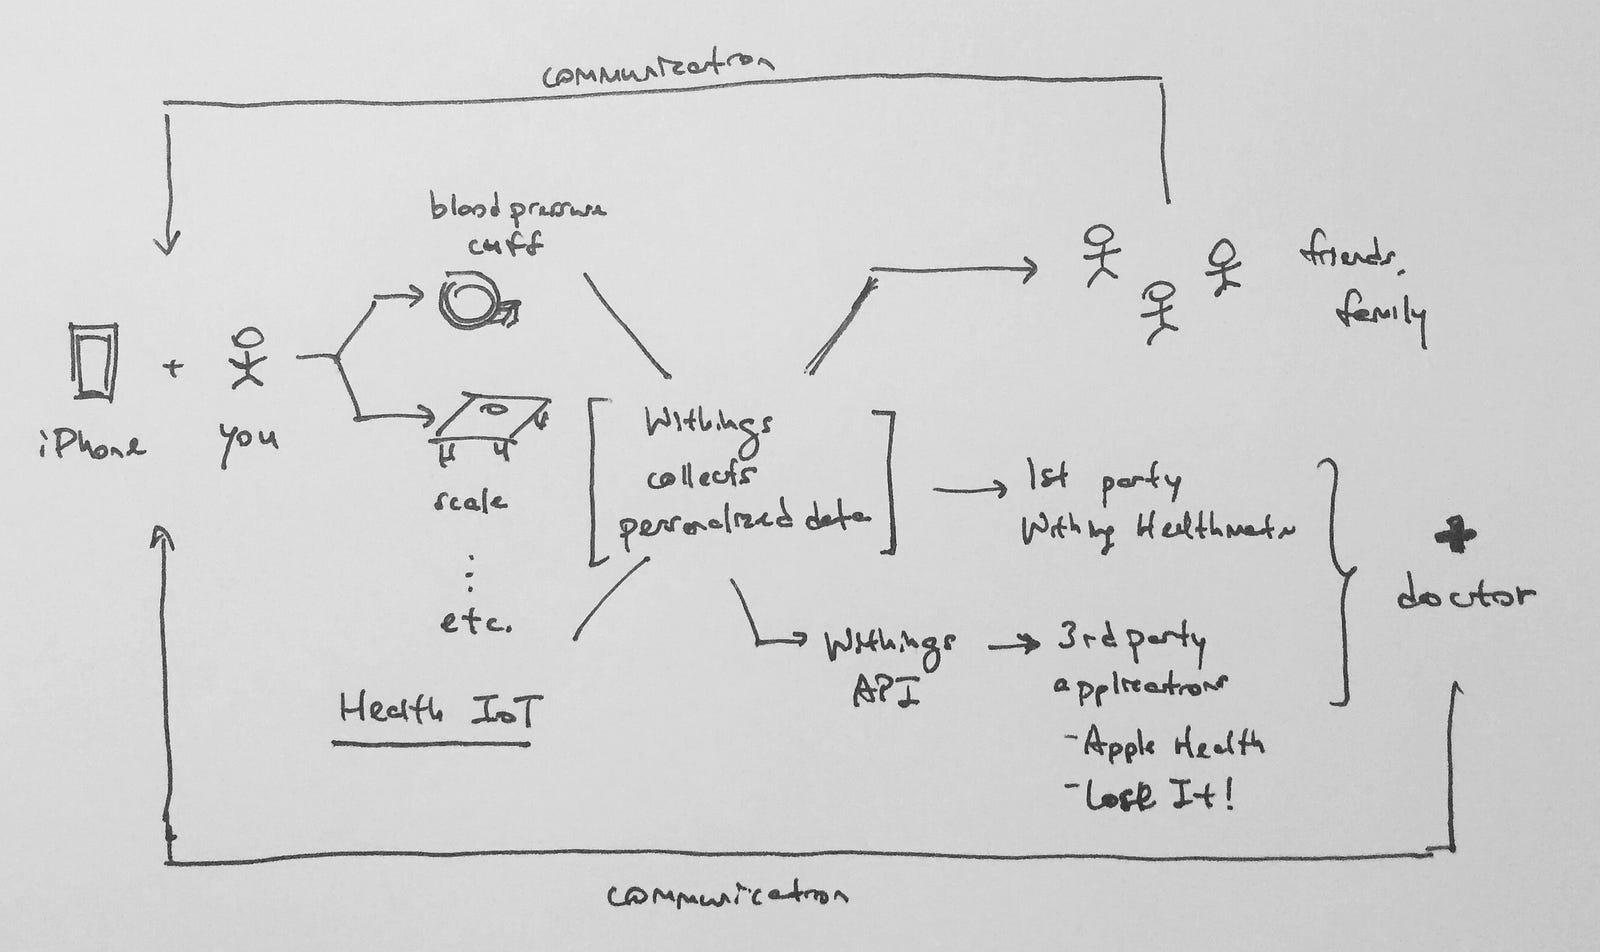 communication
blood pressure
cuff
friends,
family
iPhone
+
you
Withings
collects
personalized data
scale
1st party
Withing Healthmate
doctor
etc.
Withings
API
3rd party
applications
- Apple Health
- Lose It!
Health IoT
communication